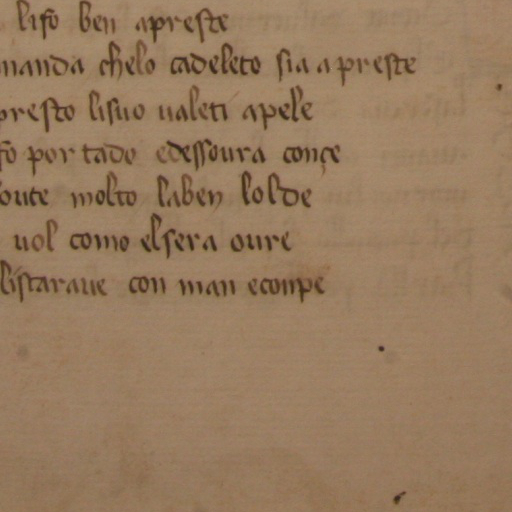 lifo ben apreste
manda chelo cadeleto sia apreste
presto lisuo ualeti apele
fo portado edessoura conçe
oute molto laben lolde
uol como elsera oure
listaraue con man econpe